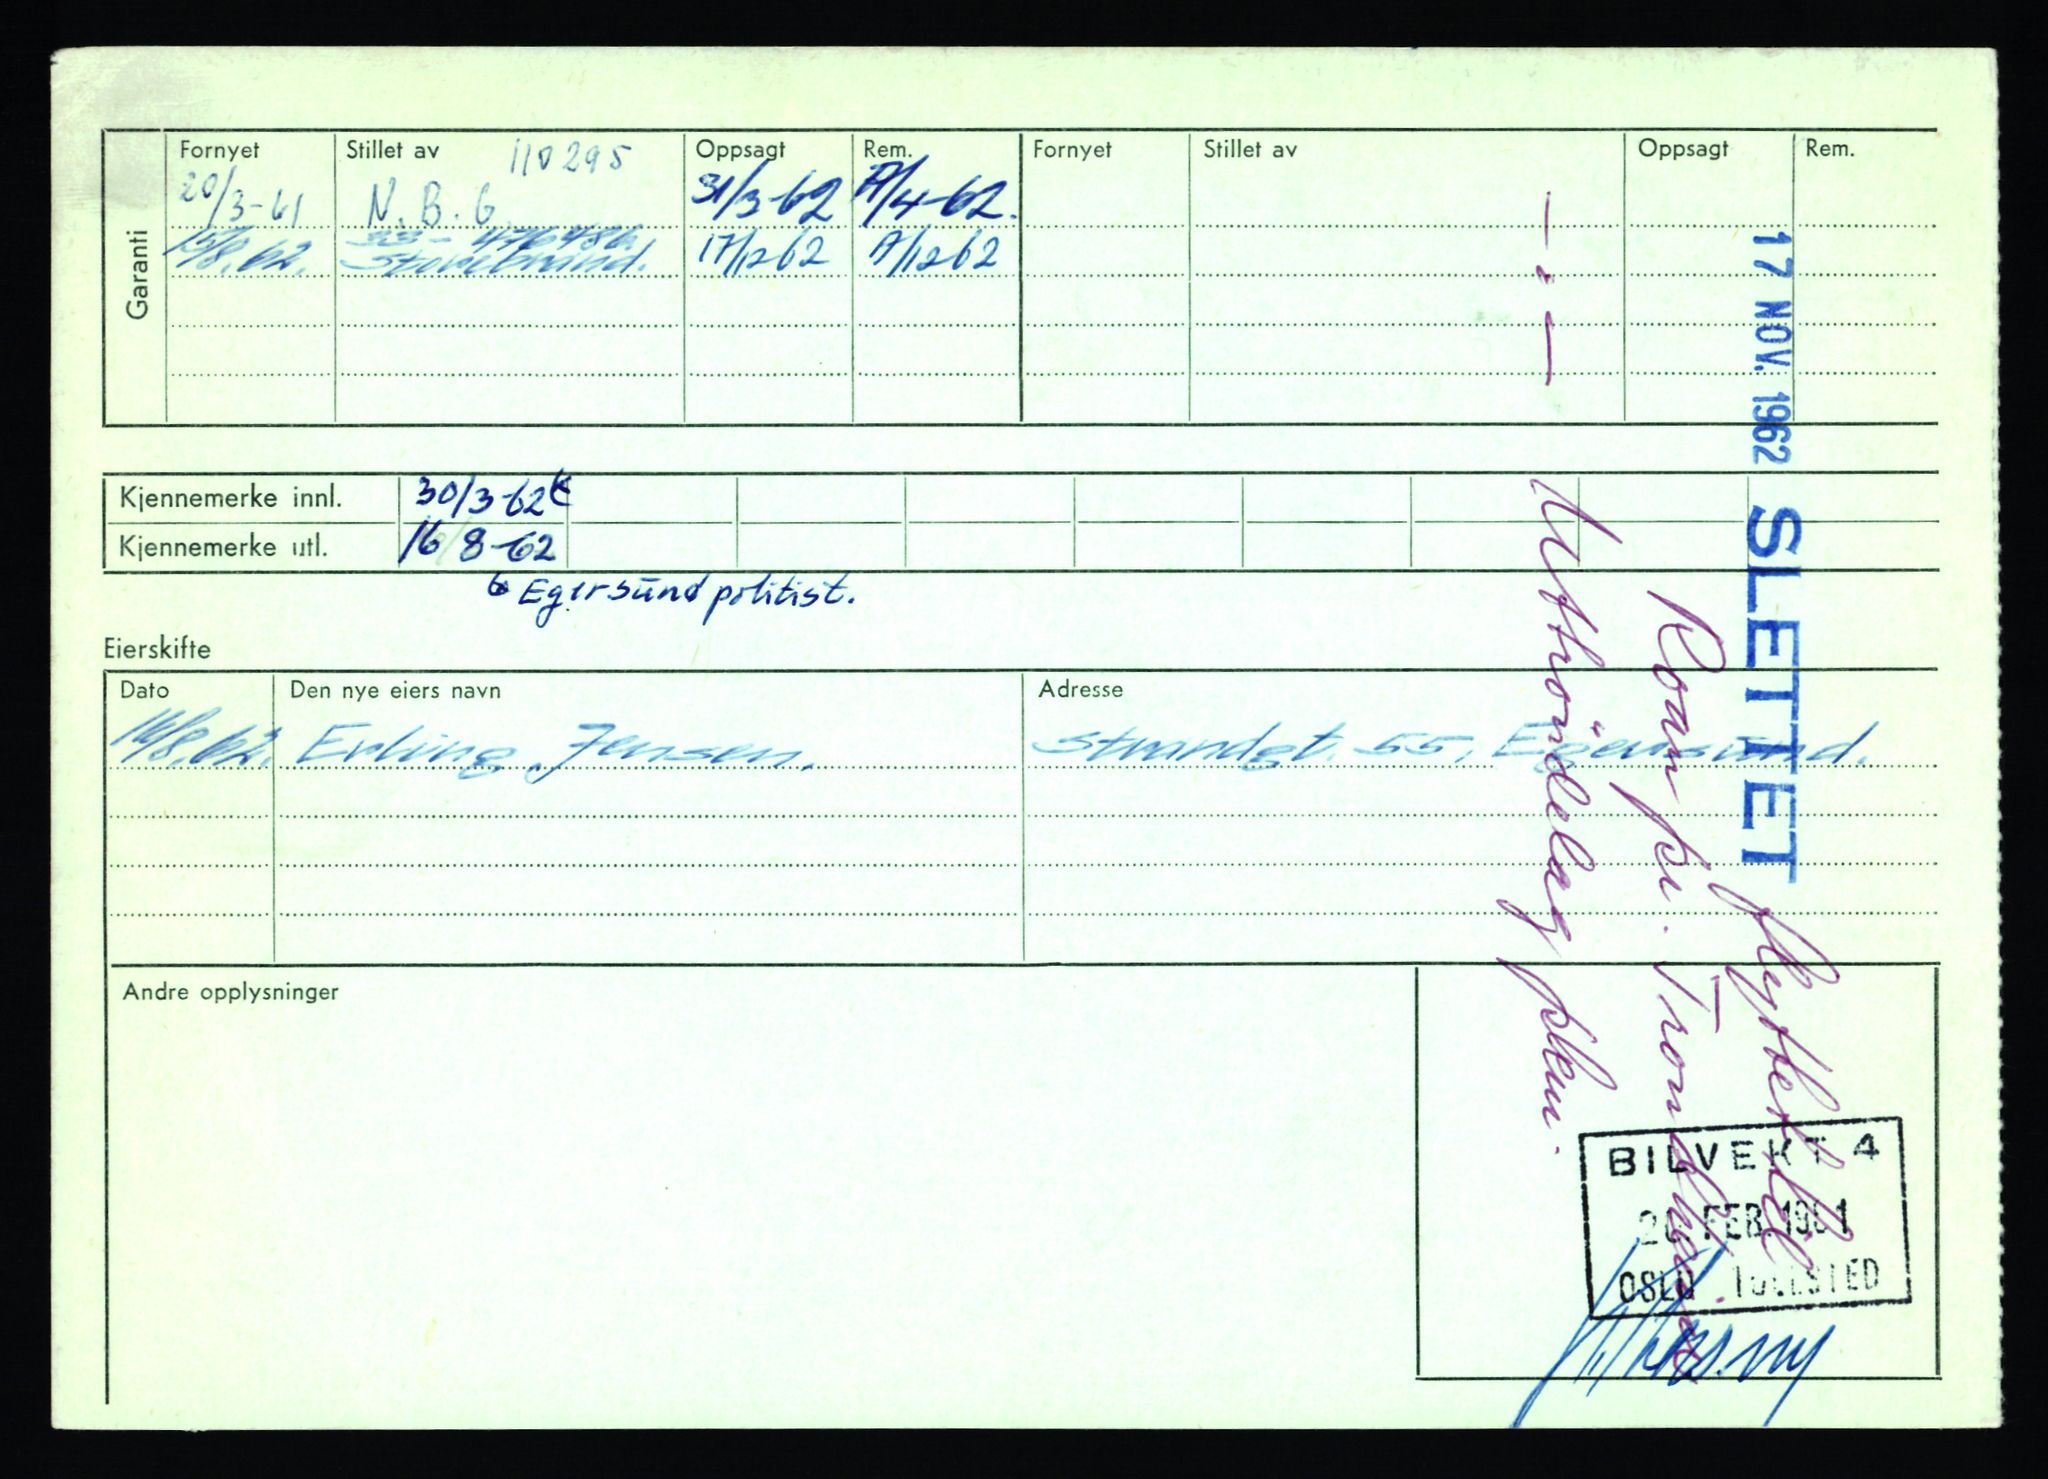 Garanti
Fornyet Stillet av 110295 Oppsagt Rem. Fornyet Stillet av Oppsagt Rem.
20/3-61 N.B.G 31/3-62 /4-62.
15/8.62. Storebrand. 17/12 62 /12 62
Kjennemerke innl. 30/3-62
Kjennemerke utl. 16/8-62
Egersund politist.
Eierskifte
Dato Den nye eiers navn Adresse
14/8.62. Erling Jensen. Strandgt. 55, Egersund.
Andre opplysninger
17 NOV. 1962 SLETTET flyttet til
Roan pr. Trondheim
Uttröndelag pkm.
BILVERT 4
FEB. 1961
OSLO TOLLSTED